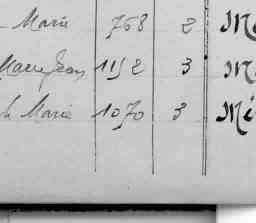 - Marie 768 2 M
Marie Jean 1152 3 M
h Marie 1070 3 Mé